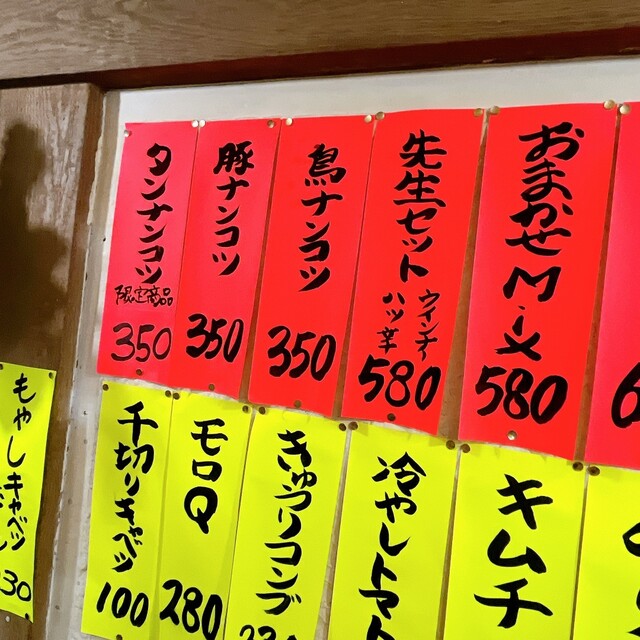 おまかせM-ix
580
先生セット
ウインナー
ハツ辛
580
鳥ナンコツ
350
豚ナンコツ
350
タンナンコツ
限定商品
350
キムチ
冷やしトマト
きゅうりコンブ
モロQ
280
千切りキャベツ
100
もやしキャベツ